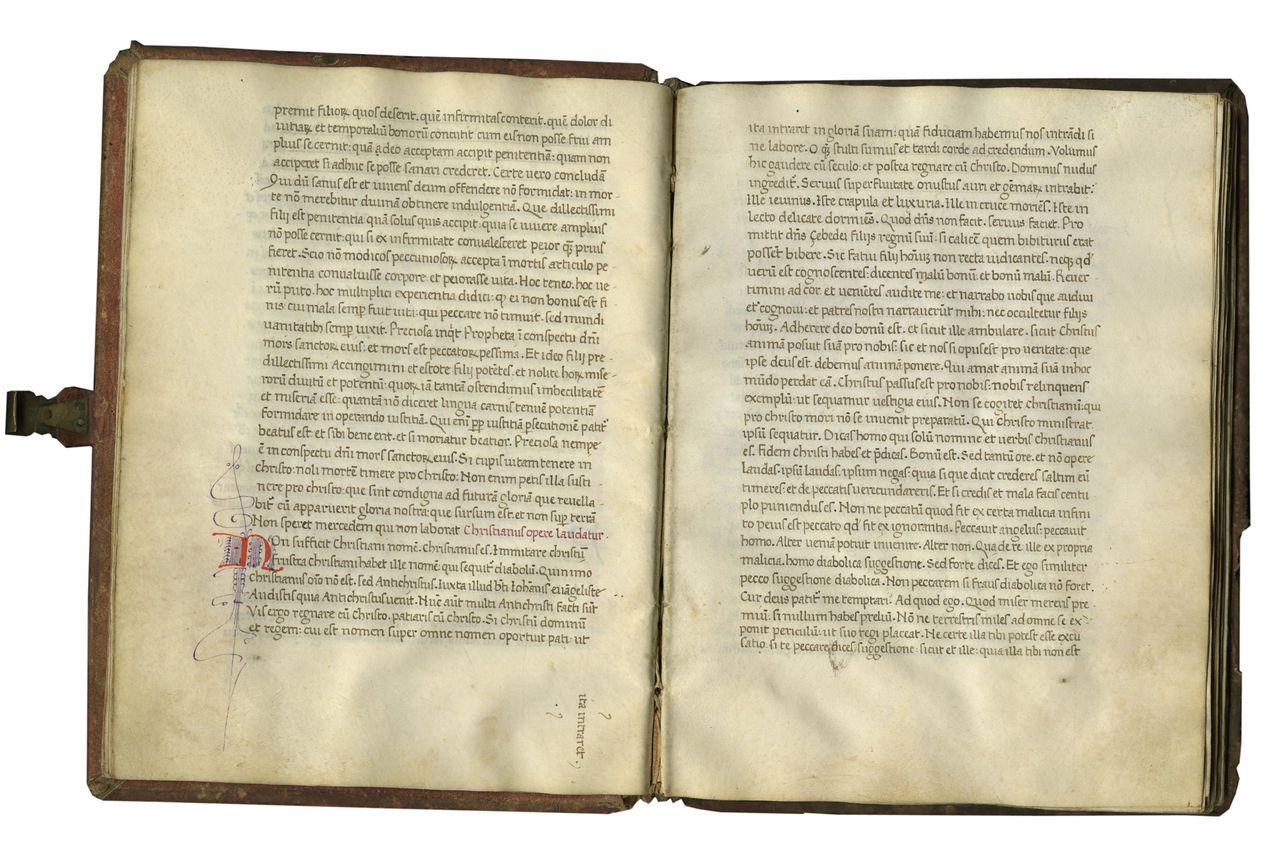 premit filioꝝ quos deserit. quē infirmitas conterit. quē dolor di
uitiaꝝ et temporaliū bonorū concutit cum eis non posse frui am
plius se cernit: quā adeo acceptam accipit penitentiā: quam non
acciperet si adhuc se posse sanari crederet. Certe uero concludā
Qui dū sanus est et uiuens deum offendere nō formidat: in mor-
te nō merebitur diuinā obtinere indulgentiā. Que dillectissimi
filij est penitentia quā solus quis accipit: quia se uiuere amplius
nō posse cernit: qui si ex infirmitate conualesceret peior qꝫ prius
fieret. Scio nō modicos pecuniosoꝝ accepta ī mortis articulo pe-
nitentia conualuisse corpore et peiorasse uita. Hoc teneo. hoc ue-
rū puto. hoc multiplici experientia didici: qꝫ ei non bonus est fi-
nis cui mala semp̄ fuit uita: qui peccare nō timuit. sed mundi
uanitatibꝫ semp̄ uixit. Preciosa inqꝫt Propheta ī conspectu dn̄i
mors sanctoꝝ eius: et mors est peccatoꝝ pessima. Et ideo filij pre-
dillectissimi Accingimini et estote filij potētes. et nolite hoꝝ mise-
rorū diuitū et potentū: quoꝝ iā tantā ostendimus imbecilitatē
et miseriā esse: quantā nō diceret lingua carnis tenuē potentiā
formidare in operando iustitiā. Qui enī ꝓp̄ iustitiā ꝑsecutionē patit᷑
beatus est: et sibi bene erit. et si moriatur beatior. Preciosa nempe
ē in conspectu dn̄i mors sanctoꝝ eius. Si cupis uitam tenere in
christo: noli mortē timere pro christo: Non enim petis illa susti-
nere pro christo: que sint condigna ad futurā gloriā que reuella-
bit᷑ cū apparuerit gloria nostra: que sursum est. et non suꝑ terrā
Non speret mercedem qui non laborat Christianus opere laudatur.
NOn sufficit Christiani nomē. christianus es. Immitare christū
frustra christiani habet ille nomē: qui sequit᷑ diabolū. Quinimo
christianus oīo nō est. sed Antichristus. Iuxta illud bt̄i Iohānis euāgeliste
Audistis quia Antichristus uenit. Nūc aūt multi Antichristi facti sūt
Vis ergo regnare cū Christo. patiaris cū christo. Si christū dominū
et regem: cui est nomen super omne nomen oportuit pati: ut
ita intraret
ita intraret in gloriā suam: quā fiduciam habemus nos intrādi si
ne labore. O qꝫ stulti sumus et tardi corde ad credendum. Volumus
hic gaudere cū seculo: et postea regnare cū Christo. Dominus nudus
ingredit᷑. Seruus superfluitate onustus auri et gēmaꝝ intrabit:
Ille ieiunus. Iste crapula et luxuria. Ille in cruce moriēs. Iste in
lecto delicate dormiēs. Quod dn̄s non facit. seruus faciet. Pro
mittit dn̄s Çebedei filijs regnū suū: si calicē quem bibiturus erat
possēt bibere. Sic fatui filij hoīuꝫ non recta iudicantes. neqꝫ qd̓
uerū est cognoscentes: dicentes malū bonū: et bonū malū. Reuer-
timini ad cor. et uenūtes audite me: et narrabo uobis que audiui
et cognoui: et patres nostri narrauerūt mihi: nec occultetur filijs
hoīuꝫ. Adherere deo bonū est. et sicut ille ambulare. sicut Christus
animā posuit suā pro nobis: sic et nos si opus est pro ueritate: que
ipse deus est. debemus animā ponere. Qui amat animā suā in hoc
mūdo perdat eā. Christus passus est pro nobis: nobis relinquens
exemplū: ut sequamur uestigia eius. Non se cogitet christianū: qui
pro christo mori nō se inuenit preparatū. Qui Christo ministrat.
ipsū sequatur. Dicas homo qui solū nomine et uerbis christianus
es. Fidem christi habes et p̄dicas. Bonū est. Sed tantū ore. et nō opere
laudas. ipsū laudas. ipsum negas: quia si que dicit crederes saltim eū
timeres: et de peccatis uerecundareris. Et si credis et mala facis centu
plo puniendus es. Non ne peccatū quod fit ex certa malicia infini
to peius est peccato qd̓ fit ex ignorantia. Peccauit angelus: peccauit
homo. Alter ueniā potuit inuenire. Alter non. Qua de re ille ex propria
malicia. homo diabolica suggestione. Sed forte dices. Et ego similiter
pecco suggestione diabolica. Non peccarem si fraus diabolica nō foret.
Cur deus patit᷑ me temptari. Ad quod ego. Quod miser mereris pre-
miū: si nullum habes preliū. Nō ne terrestris miles ad omne se ex-
ponit periculū: ut suo regi placeat. Ne certe illa tibi potest esse excu
satio. si te peccare dices suggestione: sicut et ille: quia illa tibi non est